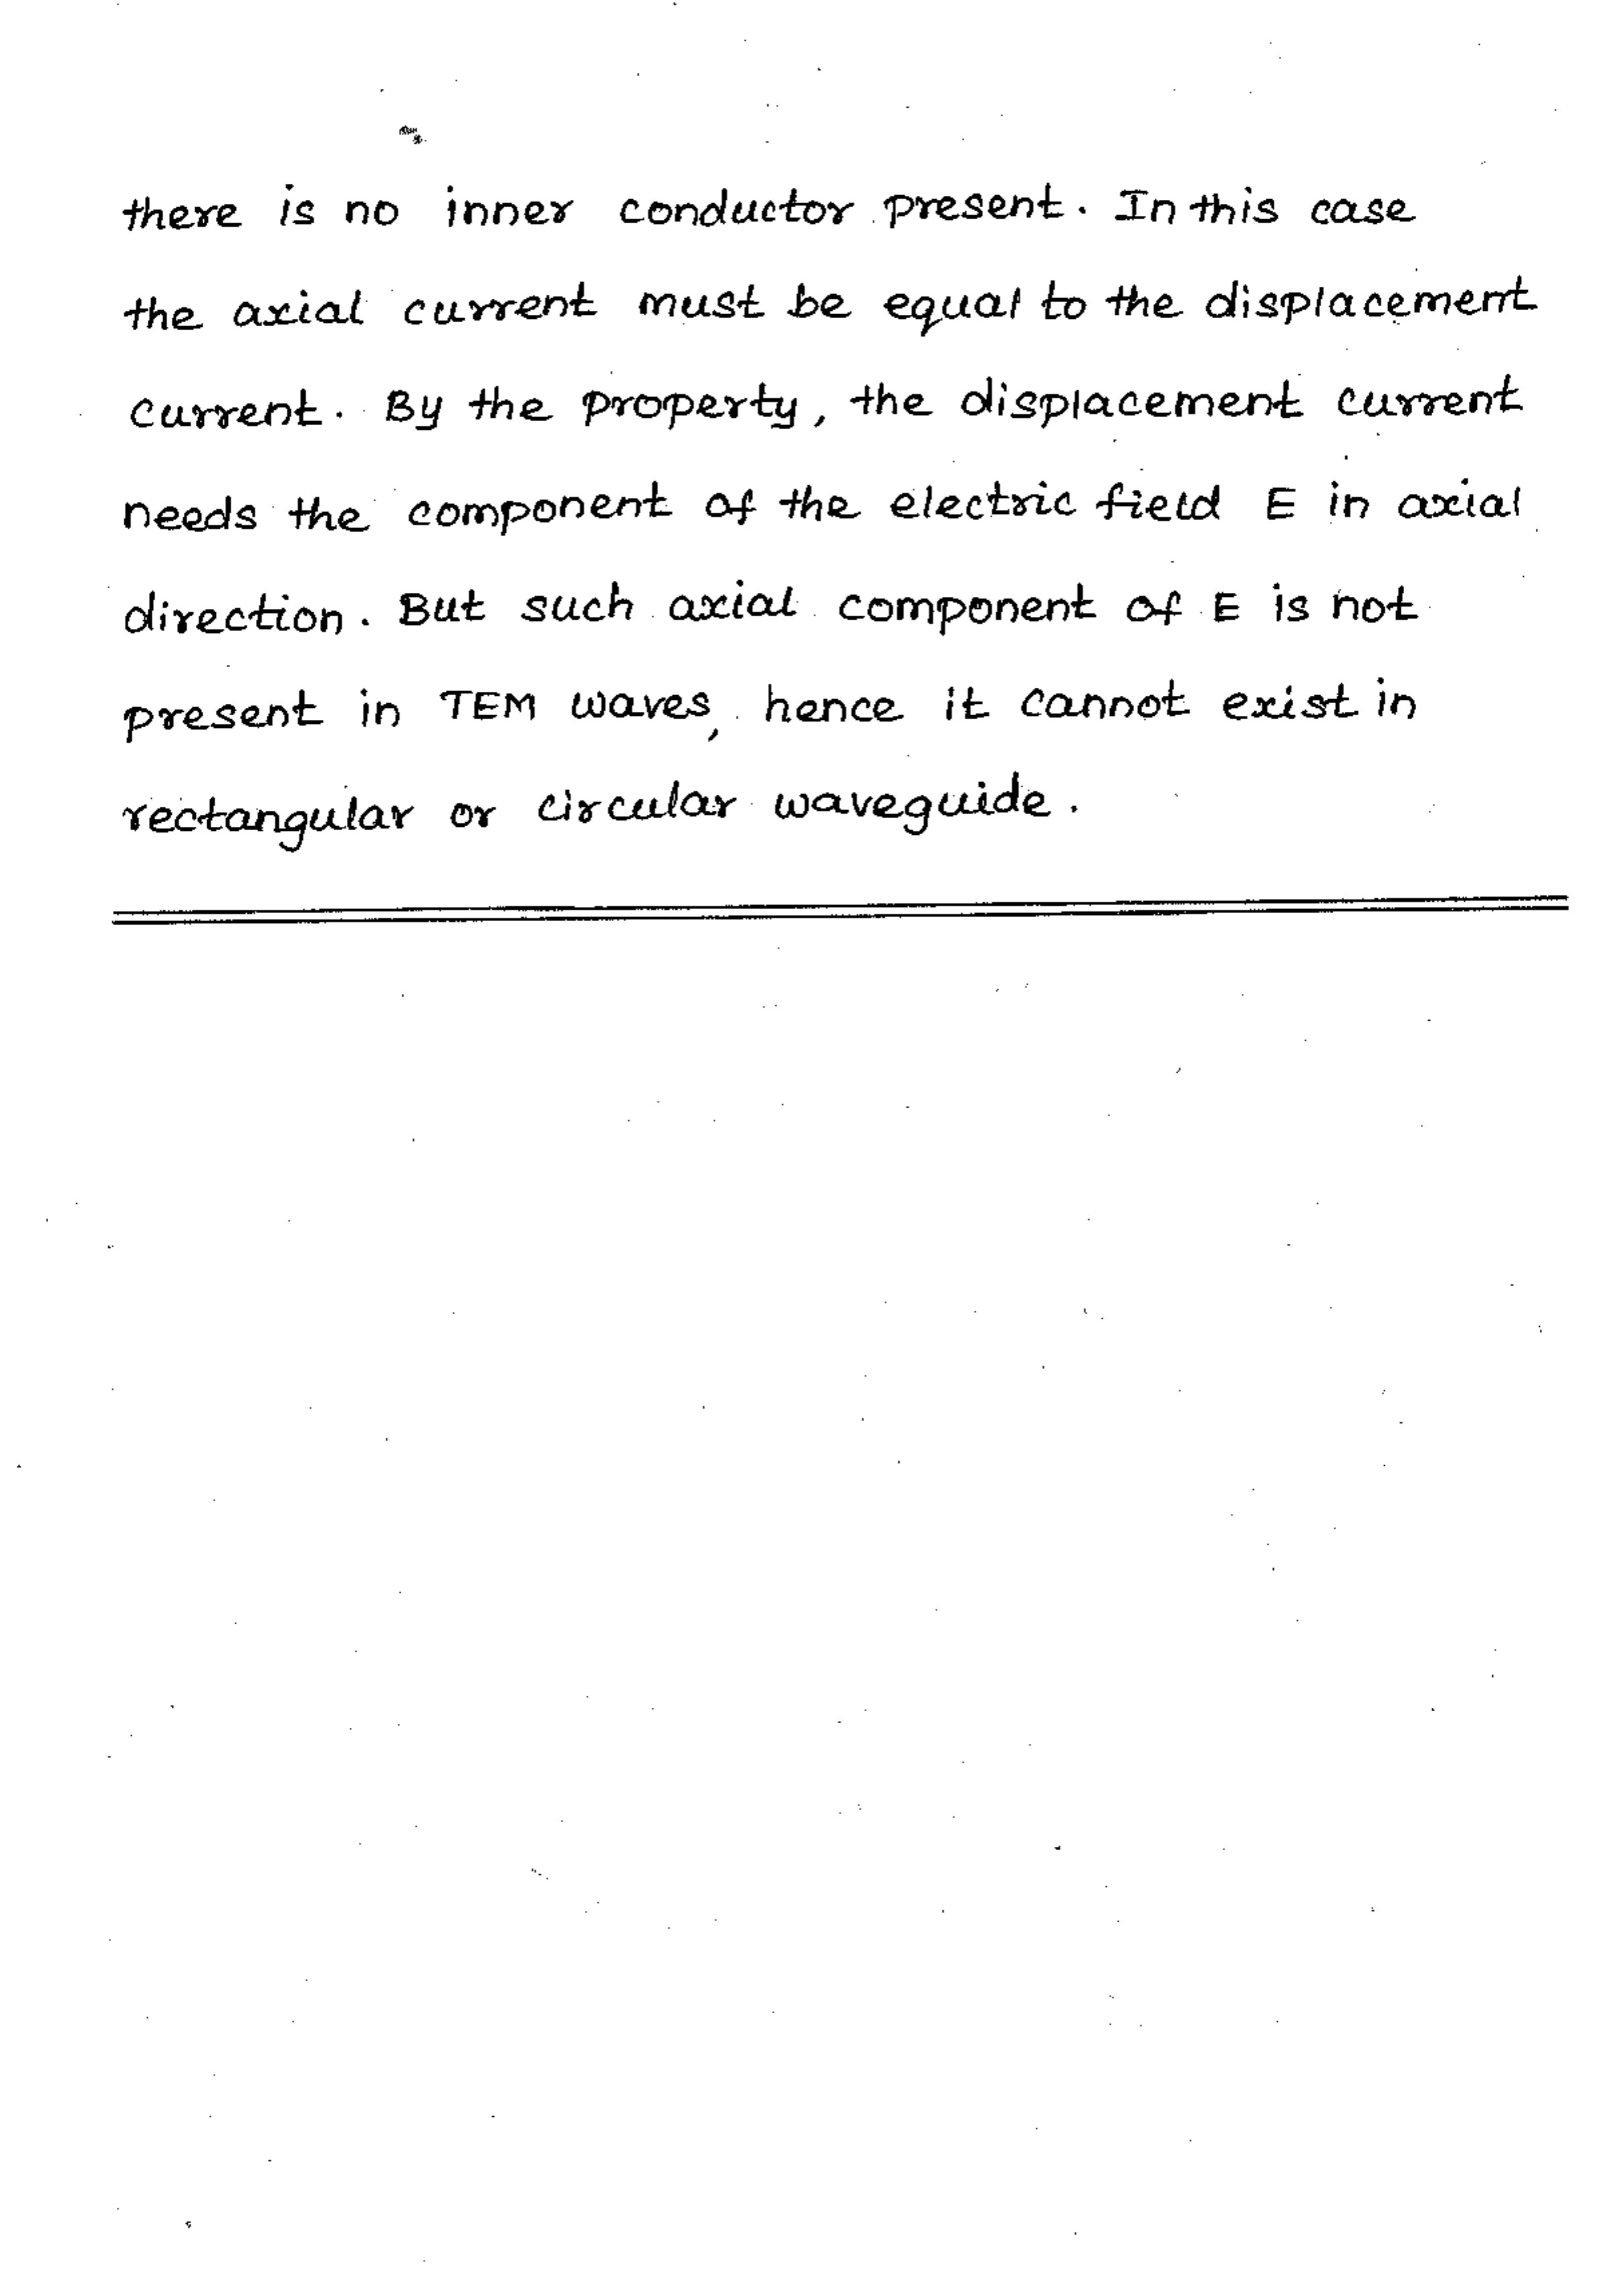 there is no inner conductor present. In this case
the axial current must be equal to the displacement
current. By the property, the displacement current
needs the component of the electric field E in axial
direction. But such axial component of E is not
present in TEM waves, hence it cannot exist in
rectangular or circular waveguide.